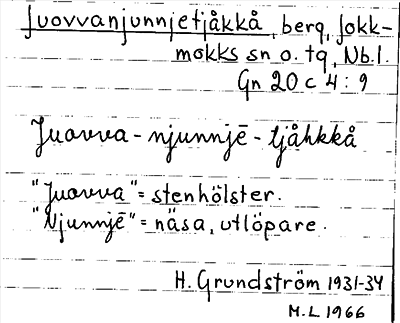 Juovvanjunnjetjåkkå, berg, Jokk-
mokks sn o. tg, Nb.l.
Gn 20 c 4 : 9
Juovva - njunnjē - tjåhkkå
"Juovva" = stenhölster.
"Njunnjē" = näsa, utlöpare.
H. Grundström 1931-34
M.L 1966